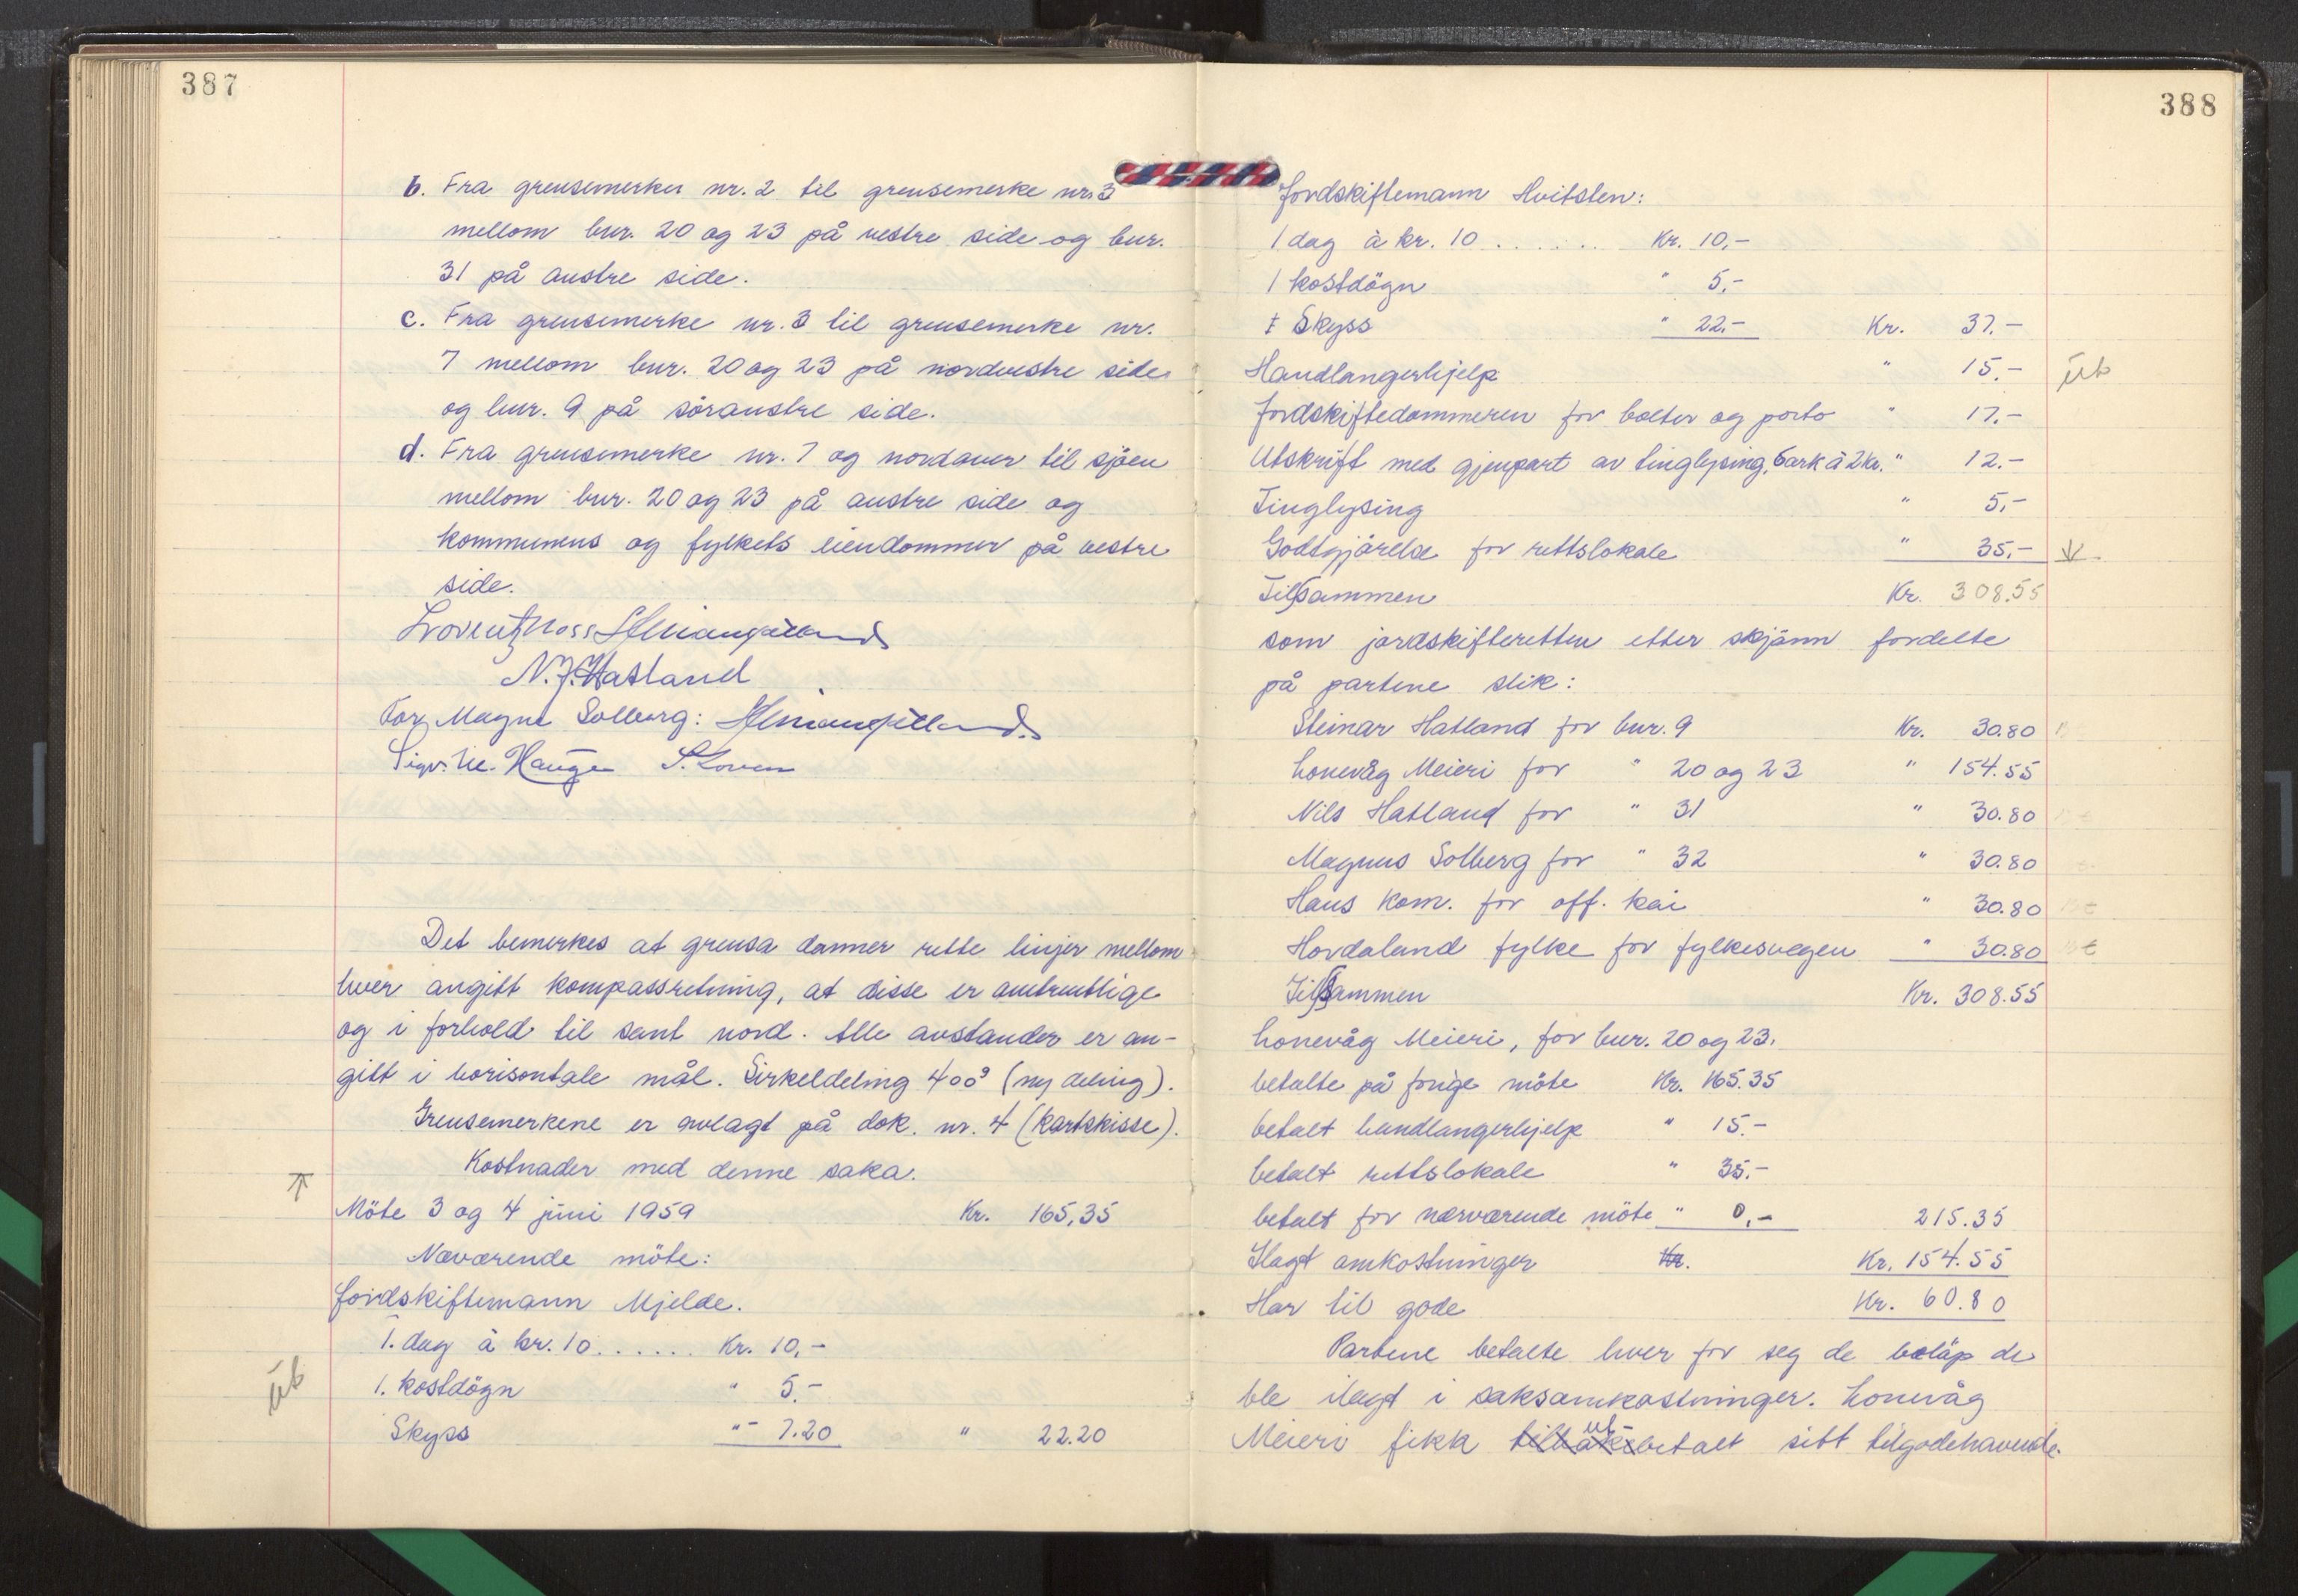 387
b. Fra grensemerker nr. 2 til grensemerke nr. 3
mellom bnr. 20 og 23 på vestre side og bnr.
31 på austre side.
c. Fra grensemerke nr. 3 til grensemerke nr.
7 mellom bnr. 20 og 23 på nordvestre side
og bnr. 9 på söraustre side.
d. Fra grensemerke nr. 7 og nordover til sjöen
mellom bnr. 20 og 23 på austre side og
kommunens og fylkets eiendommer på vestre
side.
N. J. Hatland
For Magne Solberg:
Det bemerkes at grensa danner rette linjer mellom
hver angitt kompassretning, at disse er omtrentlige
og i forhold til sant nord. Alle avstander er an-
gitt i horisontale mål. Sirkeldeling 400g (ny deling).
Grensemerkene er avlagt på dok. nr. 4 (kartskisse).
Kostnader med denne saka.
Möte 3 og 4 juni 1959 Kr. 165,35
Nærværende möte:
Jordskiftemann Mjelde.
1. dag à kr. 10 . . . . . . Kr. 10,-
1. kostdögn " 5.-
Skyss " 7.20 " 22.20
388
Jordskiftemann Hvitsten:
1 dag à kr. 10 . . . . . . Kr. 10,-
1 kostdögn " 5,-
Skyss " 22.- Kr. 37.-
Handlangerhjelp " 15.-
Jordskiftedommeren for bolter og porto " 17.-
Utskrift med gjenpart av tinglysing, 6 ark à 2 kr. " 12.-
Tinglysing " 5,-
Godtgjörelse for rettslokale " 35,-
Tilsammen Kr. 308.55
som jordskifteretten etter skjönn fordelte
på partene slik:
Steinar Hatland for bnr. 9 Kr. 30.80
Lonevåg Meieri for " 20 og 23 " 154.55
Nils Hatland for " 31 " 30.80
Magnus Solberg for " 32 " 30.80
Haus kom. for off. kai " 30.80
Hordaland fylke for fylkesvegen " 30.80
Tilsammen Kr. 308.55
Lonevåg Meieri, for bnr. 20 og 23.
betalte på forige möte Kr. 165.35
betalt handlangerhjelp " 15.-
betalt rettslokale " 35.-
betalt for nærværende möte " 0,- 215.35
Ilagt omkostninger Kr. Kr. 154.55
Har til gode Kr. 60.80
Partene betalte hver for seg de belöp de
ble ilagt i saksomkostninger. Lonevåg
Meieri fikk utbetalt sitt tilgodehavende.